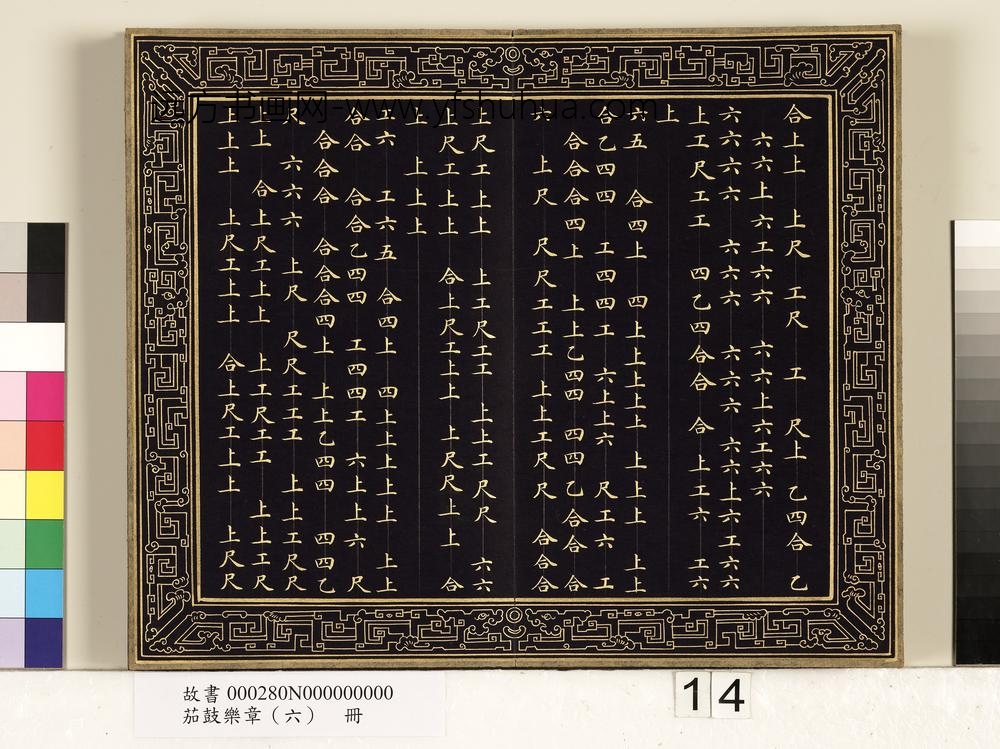 合上上 上尺 工尺 工 尺上 乙四合 乙
六六上六工六六 六六上六工六六
六六六六 六六六 六六六 六六上六工六六
上工尺工工 四乙四合合 合 上工六 工六
上
六五 合四上 四上上上上 上上上 上上
合乙四四 工四四工 六上上六 尺工六 工
合合合四上 上上乙四四 四四乙合合 合
上尺 尺尺工工工 上上工尺尺 合合合
上尺工上上 上工尺工工 上上工尺尺 六六
上尺工上上 合上尺工上上 上尺尺上上 合
上 上上上
工六 工六五 合四上 四上上上上 上上
合合 合合乙四四 工四四工 六上上六 尺
合合合 合合合四上 上上乙四四 四四乙
六六六 上尺 尺尺工工工 上上工尺尺
上上 合上尺工上上 上工尺工工 上上工尺
上上上 上尺工上上 合上尺工上上 上尺尺
书画网-www.yfshuhua.com
故書 000280N000000000
茄鼓樂章（六） 冊
14